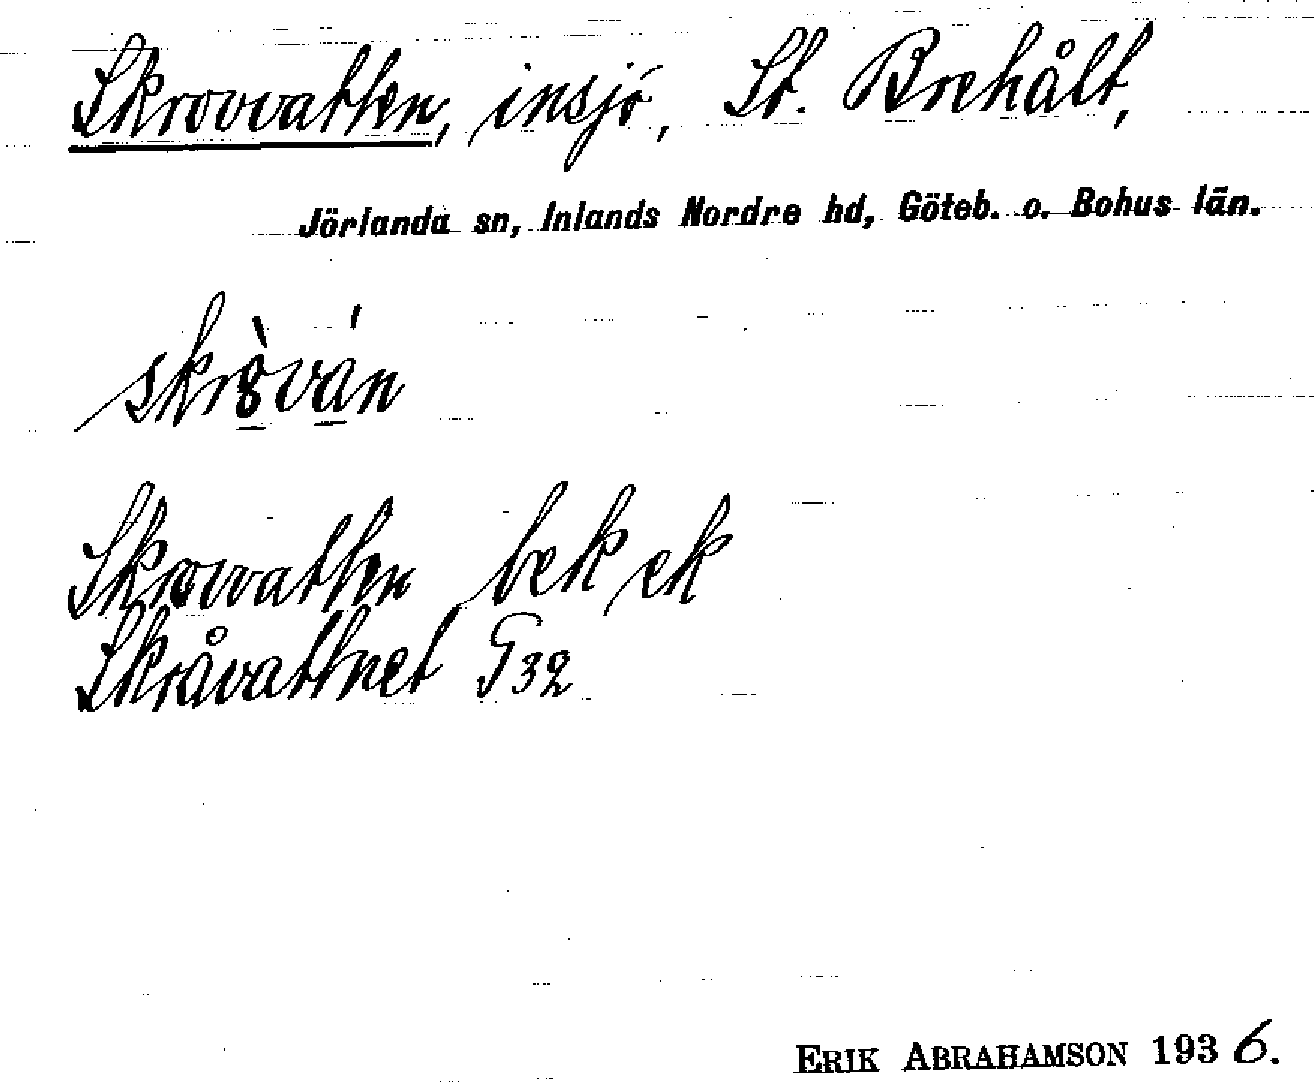 Skrovvatten, insjö, St. Brehålt,
Jörlanda sn, Inlands Nordre hd, Göteb. o. Bohus län.
Skrovvatten bek ek
Skråvattnet G 32
ERIK ABRAHAMSON 1936.